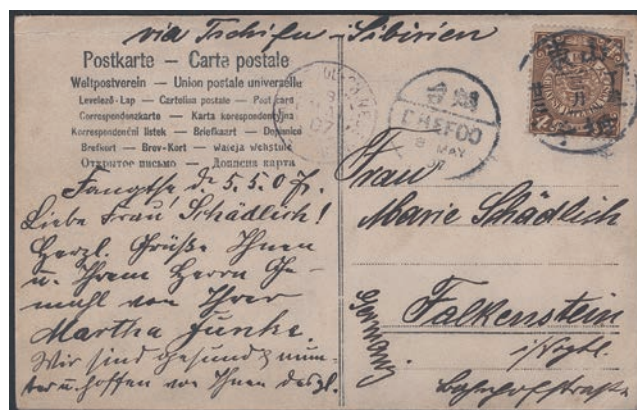 via Tschifu - Sibirien
Postkarte — Carte postale
Weltpostverein — Union postale universelle
Levelező-Lap — Cartolina postale — Post card
Correspondenzkarte — Karta korespondencyjna
Korrespondenční lístek — Briefkaart — Dopisnica
Brefkort — Brev-Kort —
Открытое письмо — Дописна карта
烟台
CHEFOO
8 MAY
07
Fangtse, d. 5.5.07.
Liebe Frau Schädlich!
Herzl. Grüße Ihnen
u. Ihrem Herrn Ge-
mahl von Ihrer
Martha Funke.
Wir sind gesund & mun-
ter u. hoffen von Ihnen desgl.
Frau
Marie Schädlich
Falkenstein
i/Vogtl.
Bahnhofstraße
Germany.